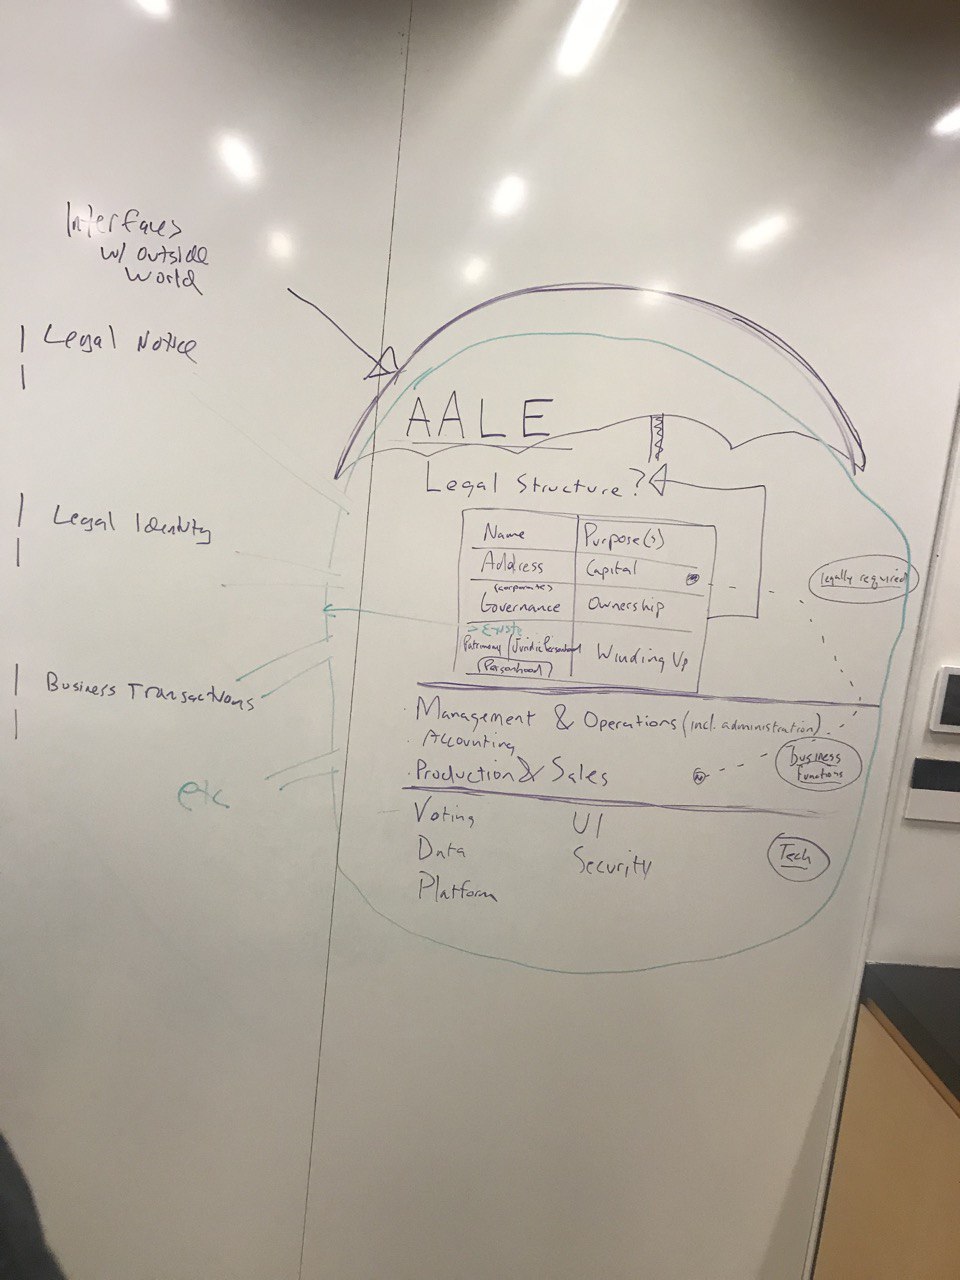 Interfaces
w/ outside
world
Legal Notice
Legal Identity
Business Transactions
etc
AALE
Legal Structure?
Name
Purpose(s)
Address
Capital
(corporate)
Governance
Ownership
Patrimony / Juridic Personhood
(Personhood)
Winding Up
legally required
· Management & Operations (incl. administration)
· Accounting
· Production & Sales
business
functions
Voting
UI
Data
Security
Platform
Tech